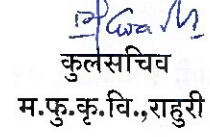 कुलसचिव
म.फु.कृ.वि.,राहुरी